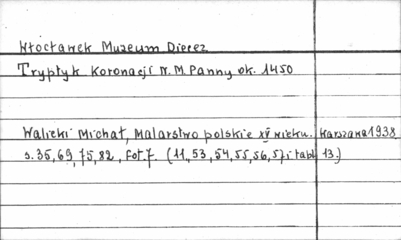 Włocławek Muzeum Diecez
Tryptyk Koronacji N. M. Panny ok. 1450
Walicki Michał, Malarstwo polskie XV wieku. Warszawa 1938
s. 35, 69, 75, 82, fot. 7. (11, 53, 54, 55, 56, 57 i tabl 13.)